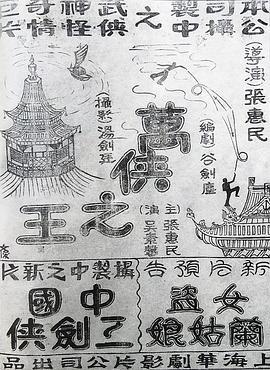 本公司攝製中之武俠神怪奇情巨片
(導演)張惠民
(編劇)谷劍塵
(攝影)湯劍廷
萬俠之王
(主演)張惠民 吳素馨
新片預告
女盜
蘭姑娘
攝製中之新片
中國
三劍俠
上海華劇影片公司出品